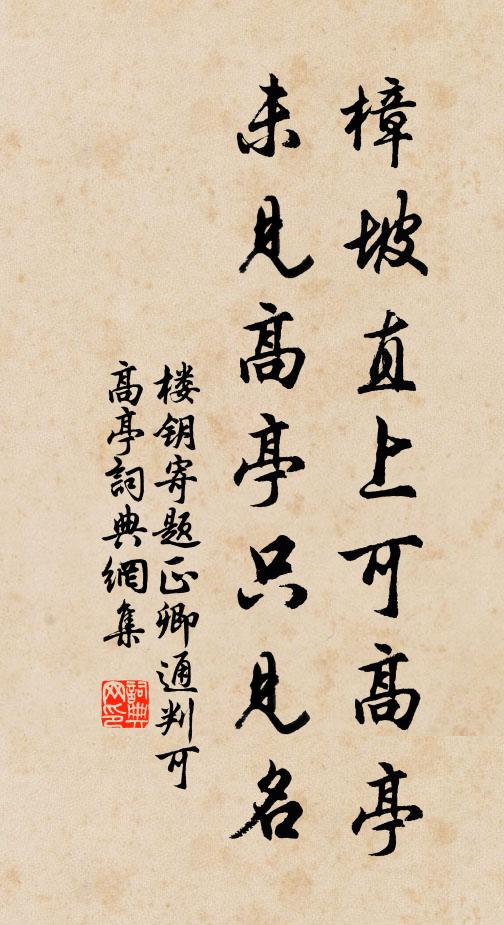 樟坡直上可高亭
未见高亭只见名
楼钥寄题正卿通判可
高亭詞典網集
詞典
网印